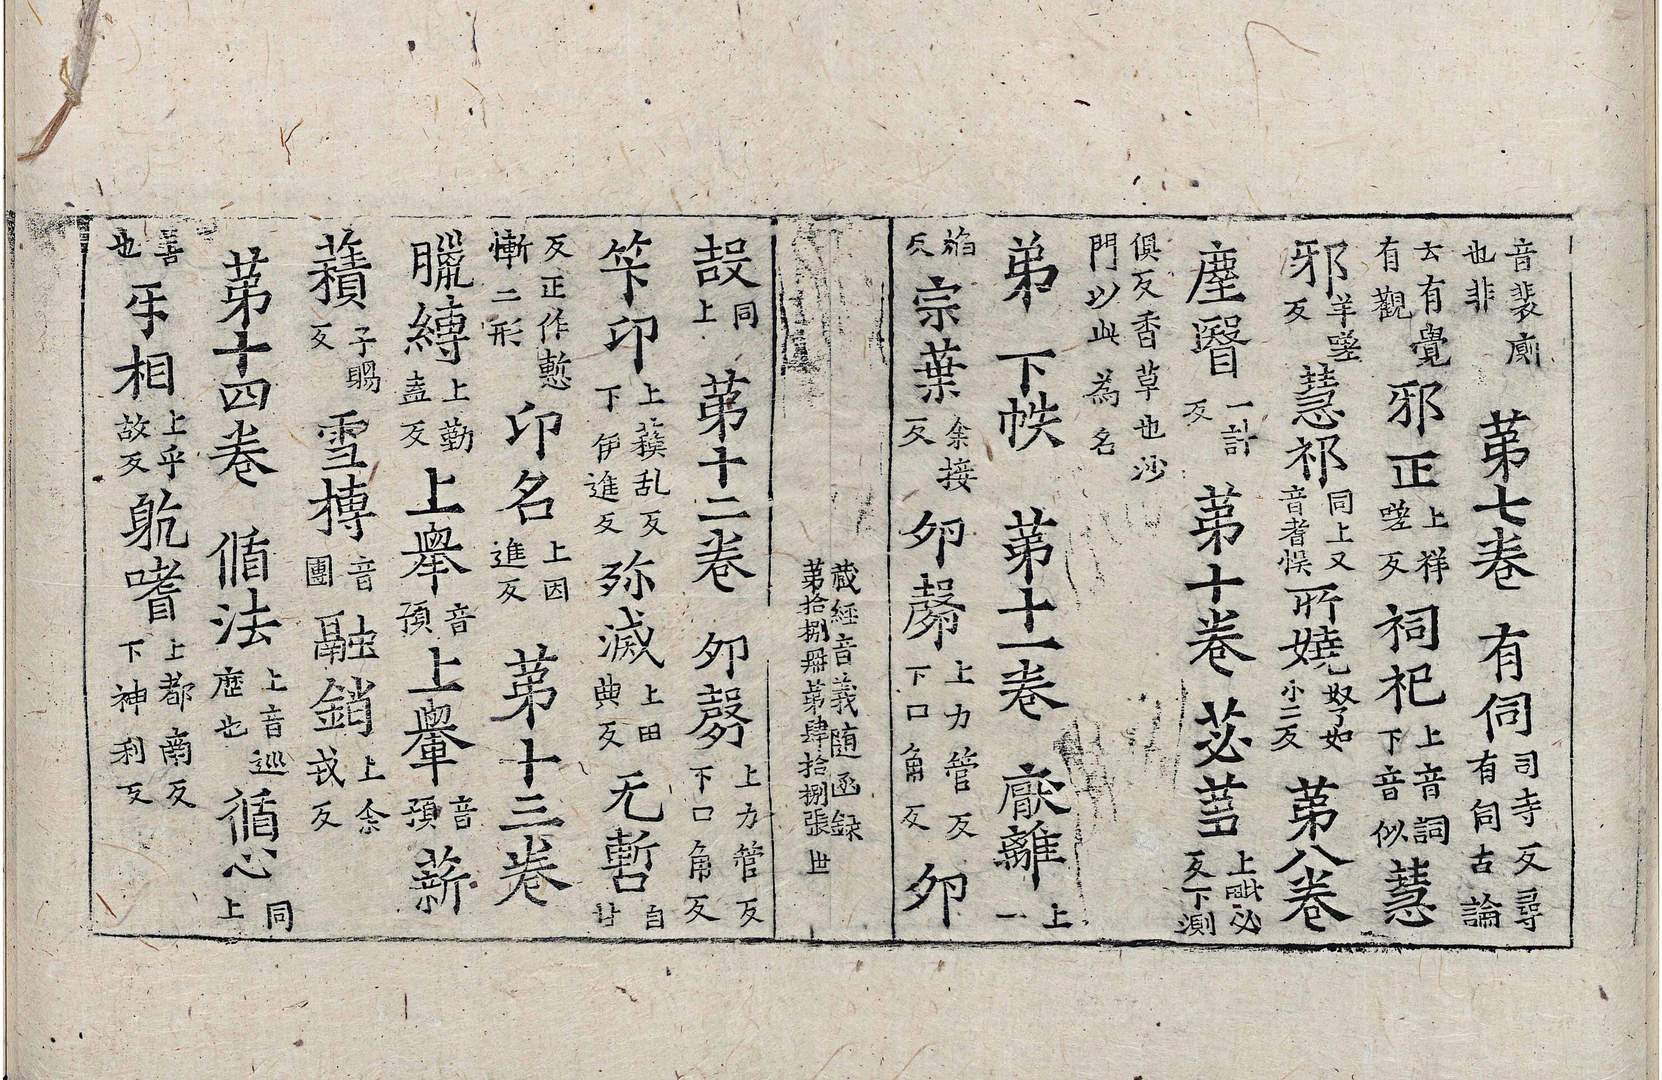 音裴廁
也非 第七卷 有伺 司寺反尋
有伺古論
云有覺
有觀 邪正 上祥
嗟反 祠祀 上音詞
下音似 慧
邪 羊嗟
反 慧祁 同上又
音耆悮 所嬈 奴如
小二反 第八卷
塵瞖 一計
反 第十卷 苾蒭 上毗必
反下測
俱反香草也沙
門以此為名
弟 下帙 第十一卷 厭離 上
一
焰
反 宗葉 余接
反 夘 上力管反
下口角反 夘
藏經音義随函録
第拾捌冊第肆拾捌張 世
同
上 第十二卷 夘 上力管反
下口角反
笇印 上蘇乱反
下伊進反 殄滅 上田
典反 无暫 自
廿
反正作慙
慚二形 印名 上因
進反 第十三卷
臘縛 上勤
盍反 上舉 音
預 上轝 音
預 薪
𧂐 子賜
反 雪摶 音
團 融銷 上余
戎反
第十四卷 循法 上音巡
歷也 循心 同
上
善
也 㸦相 上乎
故反 躭嗜 上都南反
下神利反